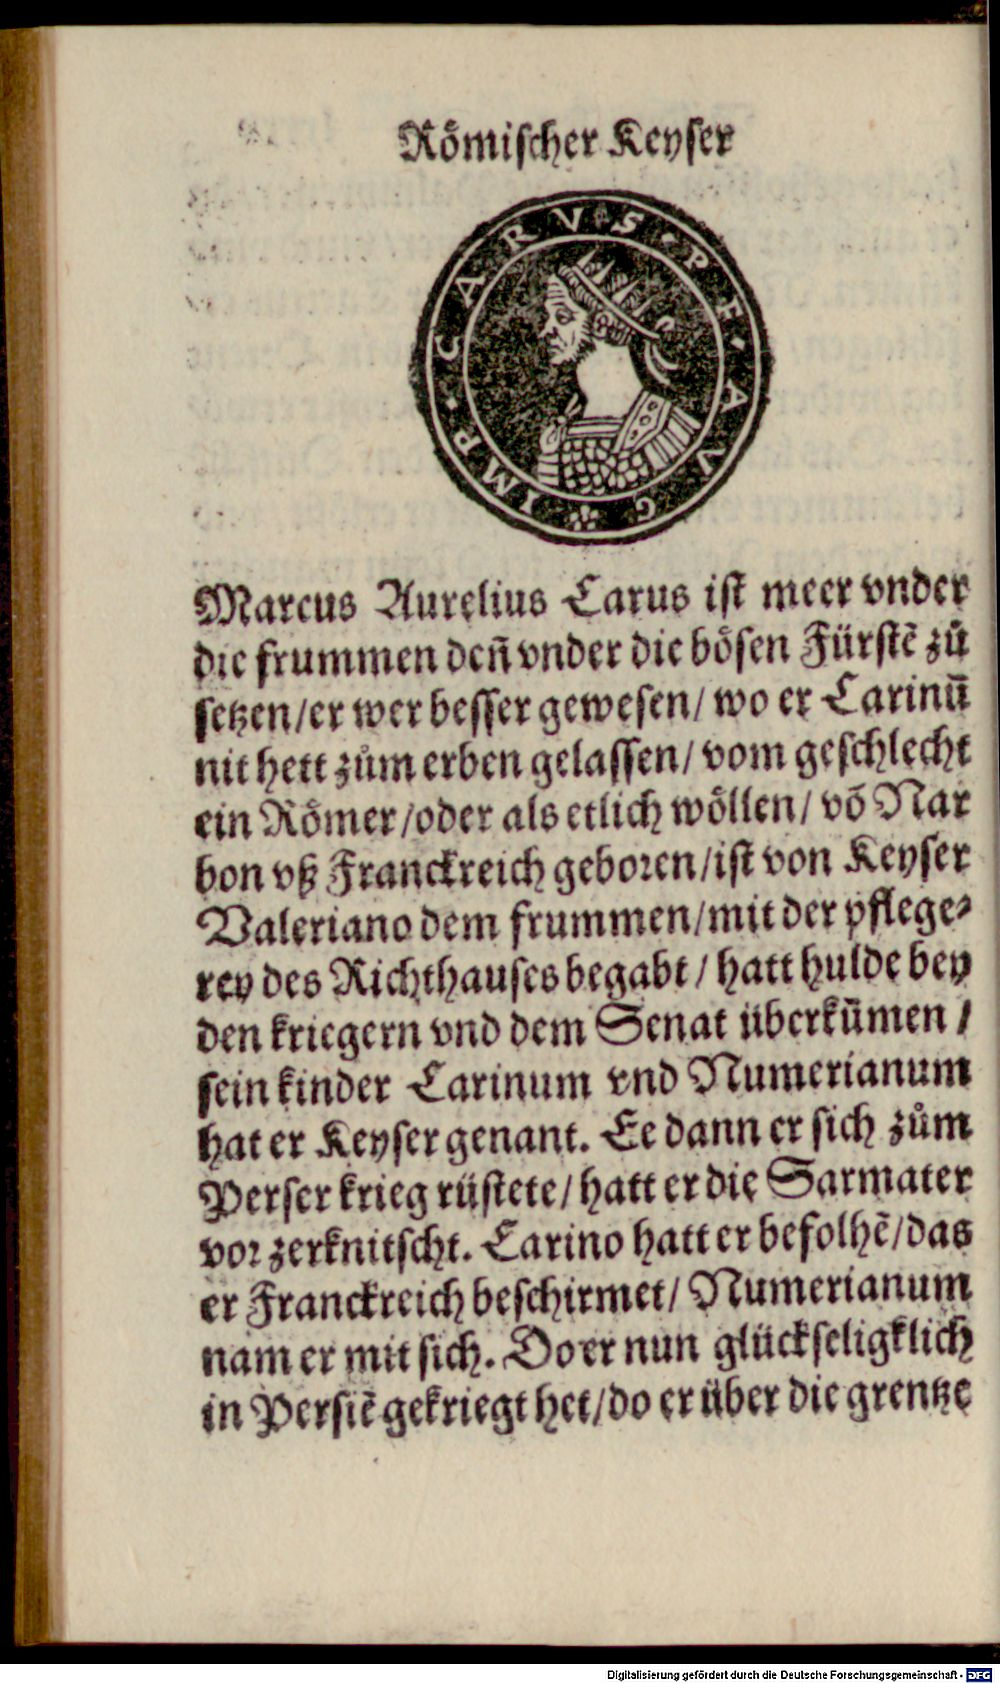 Römischer Keyser
IMP · CARVS · P F · AVG
Marcus Aurelius Carus ist meer vnder
die frummen deñ vnder die bösen Fürstẽ zů
setzen/er wer besser gewesen/ wo er Carinũ
nit hett zům erben gelassen/ vom geschlecht
ein Römer/oder als etlich wöllen/ võ Nar
bon vß Franckreich geboren/ist von Keyser
Valeriano dem frummen/mit der pflege⸗
rey des Richthauses begabt / hatt hulde bey
den kriegern vnd dem Senat überkũmen /
sein kinder Carinum vnd Numerianum
hat er Keyser genant. Ee dann er sich zům
Perser krieg rüstete/ hatt er die Sarmater
vor zerknitscht. Carino hatt er befolhẽ/das
er Franckreich beschirmet/ Numerianum
nam er mit sich. Do er nun glückseligklich
in Persiẽ gekriegt het/do er über die grentze
Digitalisierung gefördert durch die Deutsche Forschungsgemeinschaft - DFG